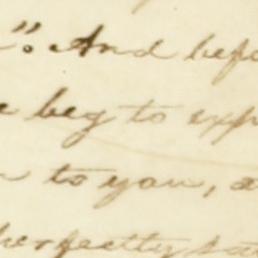 ". And befo
e beg to exp
to you, a
perfectly sa